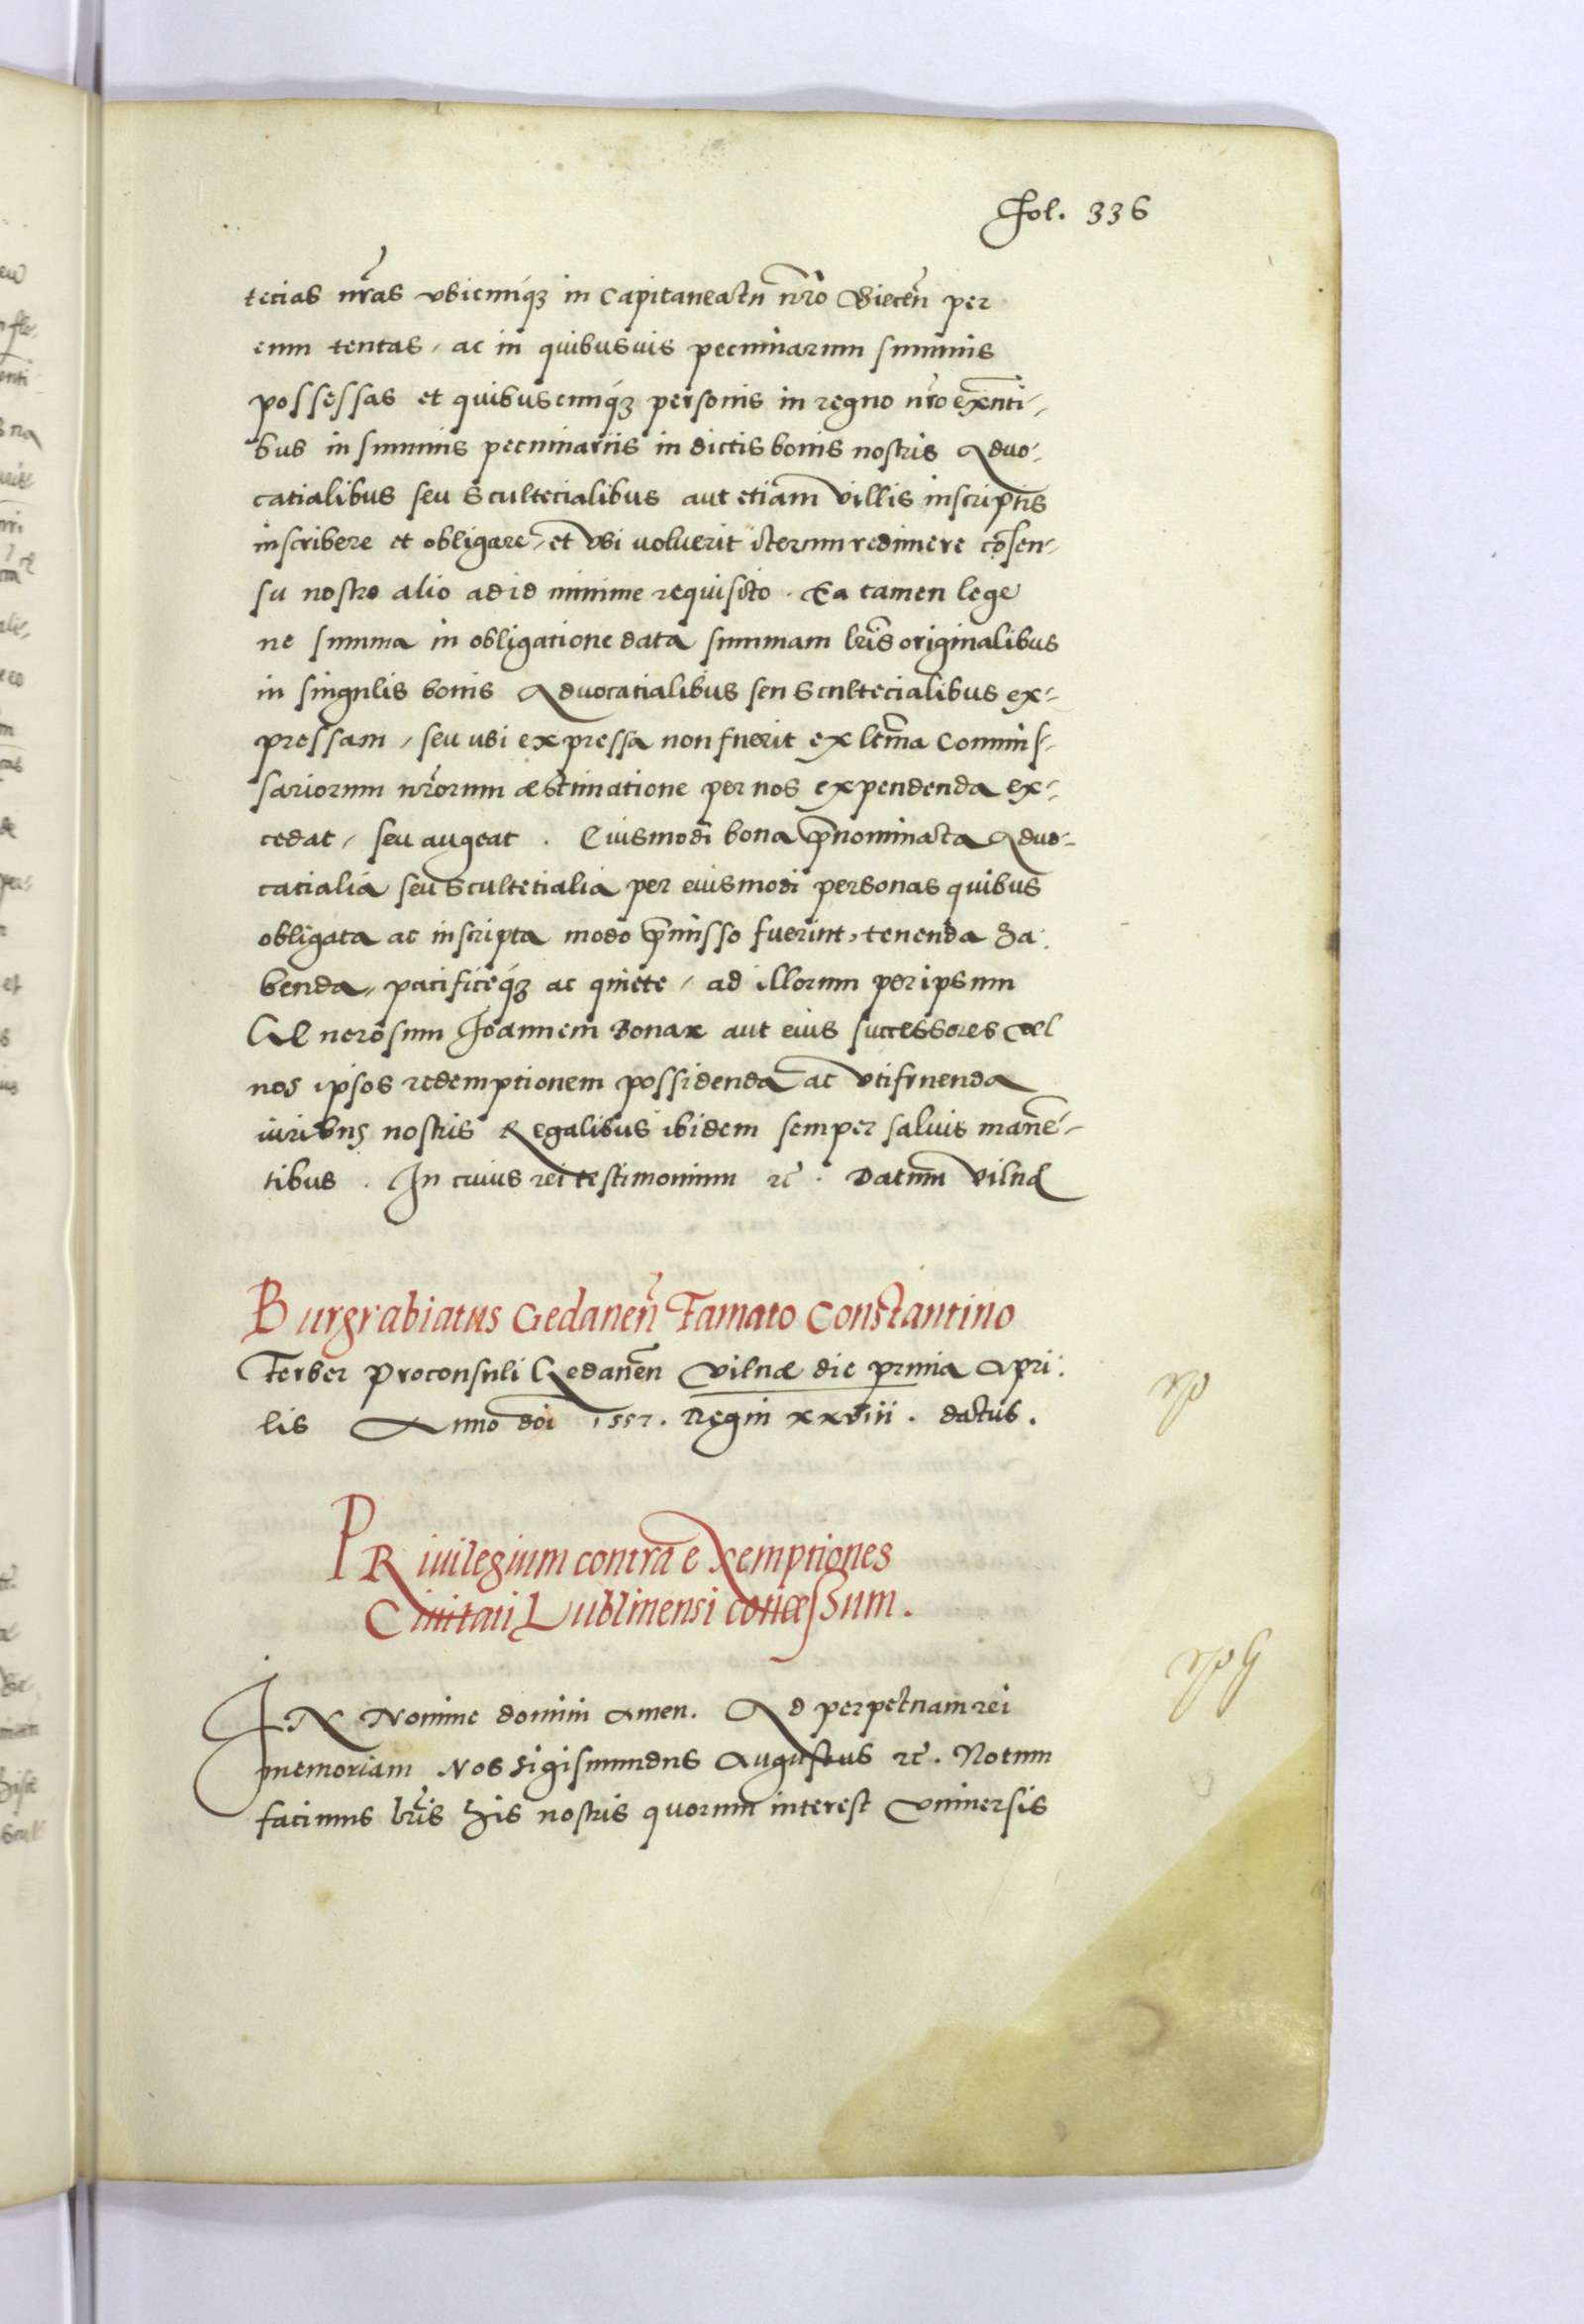 Fol. 336
tecias nr̃as vbicunq́ꝫ in Capitaneatu nr̃o Biecen̄ per
eum tentas, ac in quibusuis pecuniarum summis
possessas et quibuscunq́ꝫ personis in regno nr̃o exn̄ti-
bus in summis pecuniariis in dictis bonis nostris Aduo-
catialibus seu Scultecialibus aut etiam villis inscriptis
inscribere et obligare, et vbi voluerit iterum redimere cōsen-
su nostro alio ad id minime requisito. Ea tamen lege
ne summa in obligatione data summam lr̃is originalibus
in singulis bonis Aduocatialibus seu Scultecialibus ex-
pressam, seu ubi expressa non fuerit ex ltĩma Commis-
sariorum nr̃orum æstimatione per nos expendenda ex-
cedat, seu augeat. Eiusmodi bona p̄nominata Aduo-
catialia seu Scultetialia per eiusmodi personas quibus
obligata ac inscripta modo p̄misso fuerint, tenenda ha-
benda, pacificeq́ꝫ ac quiete, ad illorum per ipsum
Generosum Joannem Bonar aut eius successores vel
nos ipsos redemptionem possidenda ac vtifruenda
iuribus nostris Regalibus ibidem semper saluis manē-
tibus. In cuius rei testimonium ꝛc̃. Datum Vilnæ
Burgrabiatus Gedanen̄ Famato Constantino
Ferber Proconsuli Gedanen̄ Vilnæ die prima Apri-
lis Anno doī 1557. Regin̄ xxviii. datus.
PRiuilegium contra eXemptiones
Ciuitati Lublinensi concessum.
IN Nomine domini Amen. Ad perpetuam rei
memoriam Nos Sigismundus Augustus ꝛc̃. Notum
facimus lr̃is his nostris quorum interest Vniuersis